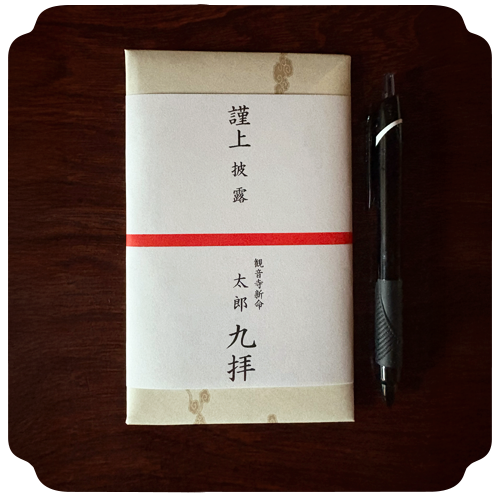 謹上 披露
観音寺新命
太郎 九拝